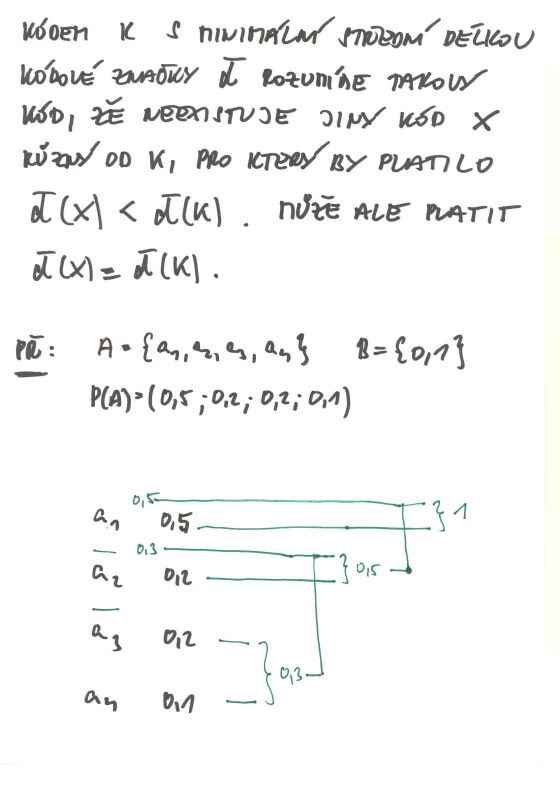 KÓDEM K S MINIMÁLNÍ STŘEDNÍ DÉLKOU
KÓDOVÉ ZNAČKY d̄ ROZUMÍME TAKOVÝ
KÓD, ŽE NEEXISTUJE JINÝ KÓD X
RŮZNÝ OD K, PRO KTERÝ BY PLATILO
d̄(X) < d̄(K). MŮŽE ALE PLATIT
d̄(X) = d̄(K).
PŘ: A = {a1, a2, a3, a4} B = {0,1}
P(A) = (0,5 ; 0,2 ; 0,2 ; 0,1)
0,5
a1 0,5 } 1
0,3
a2 0,2 } 0,5
a3 0,2
} 0,3
a4 0,1